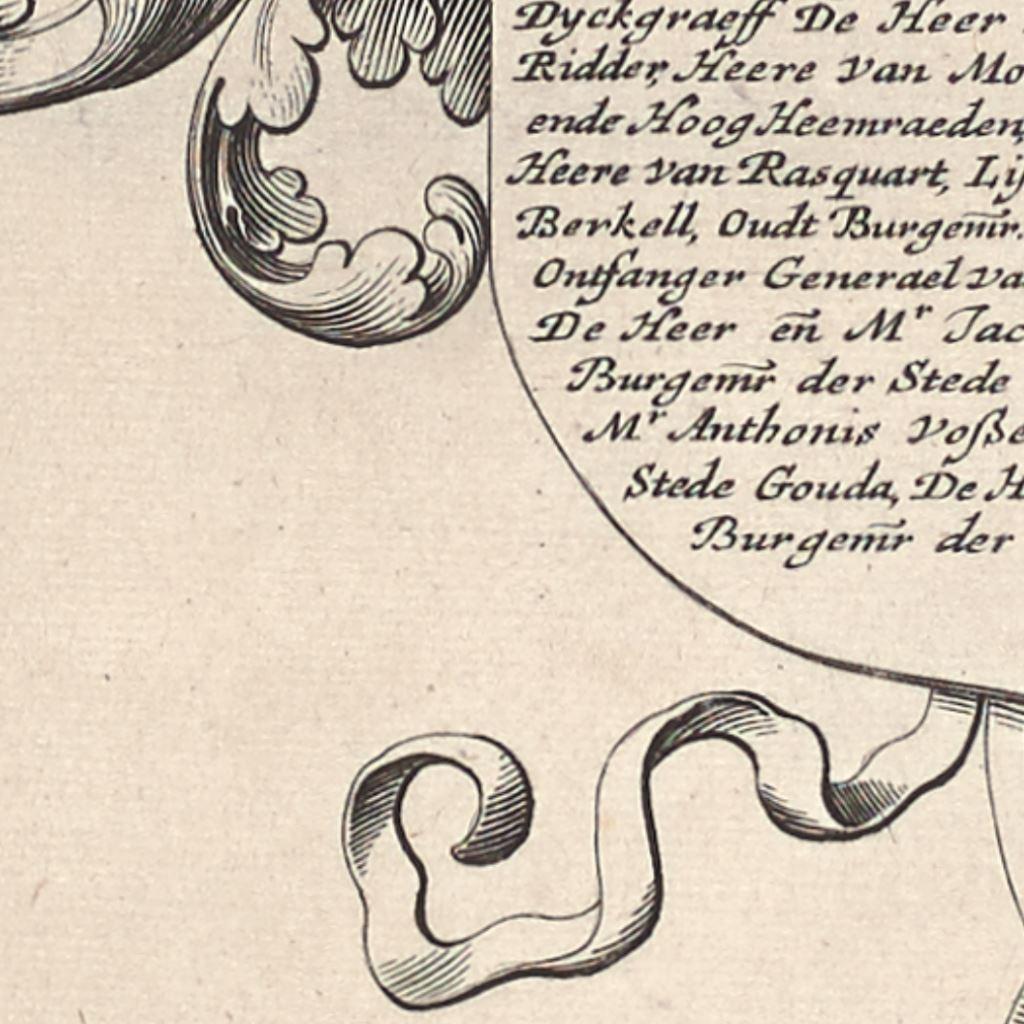 Dyckgraeff De Heer
Ridder, Heere van Mo
ende Hoog Heemraeden,
Heere van Rasquart, Lij
Berkell, Oudt Burgem̅r.
Ontfanger Generael va
De Heer en̅ Mʳ Jac
Burgem̅r der Stede
Mʳ Anthonis Voſße
Stede Gouda, De H
Burgem̅r der